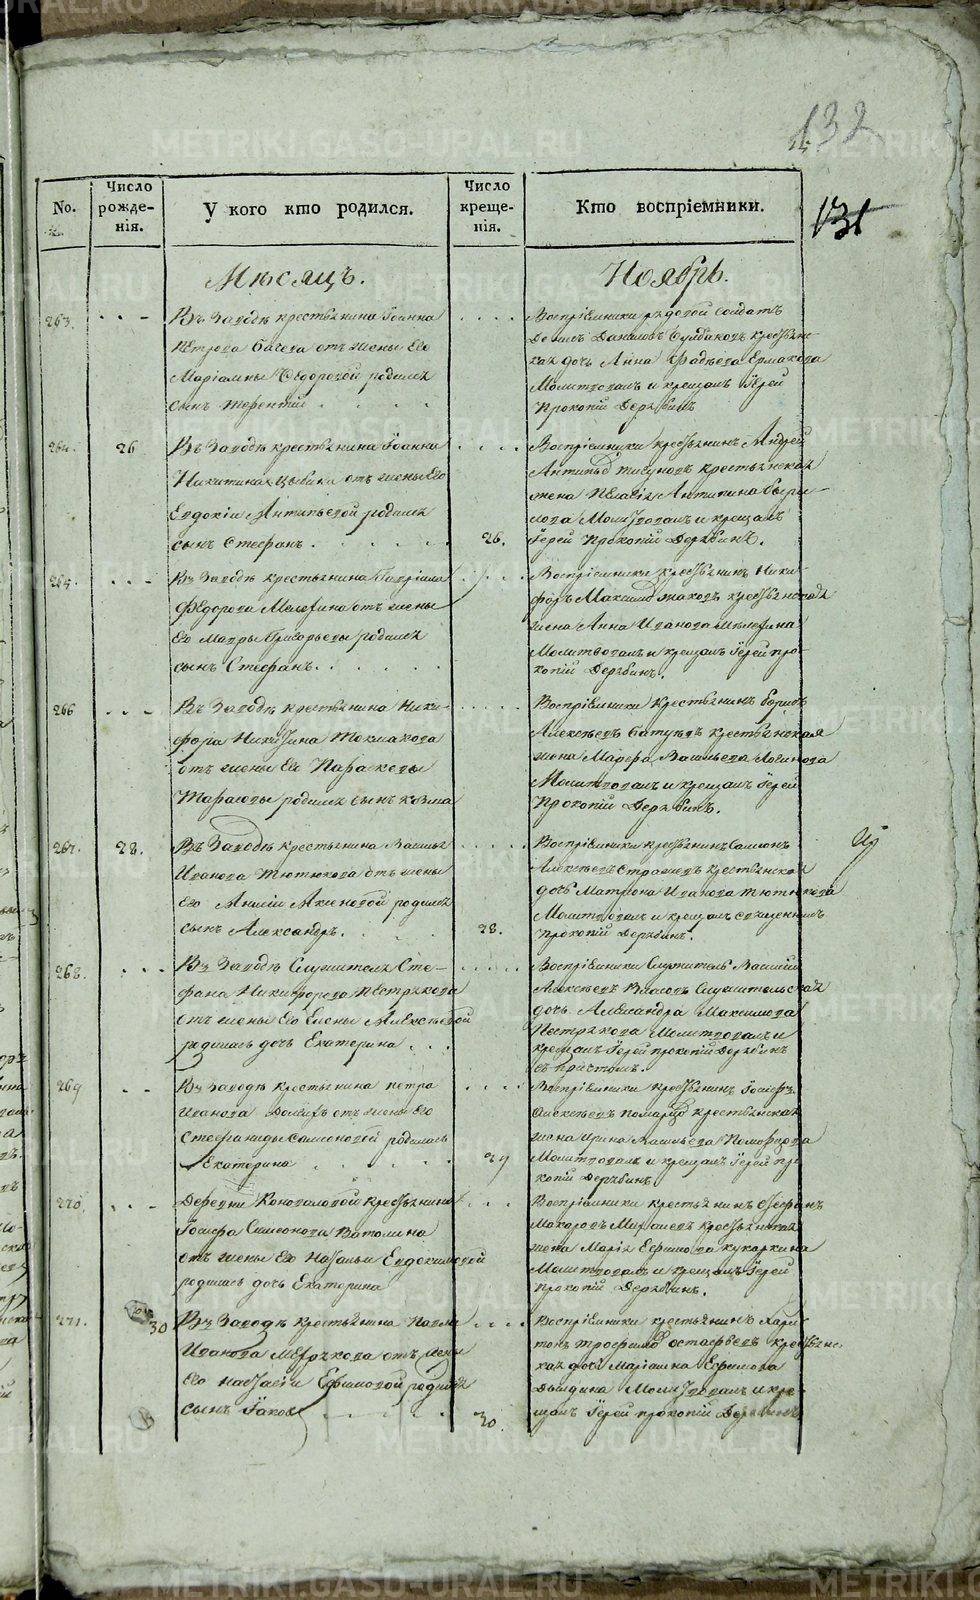 132
131
No.
Число рожденія.
У кого кто родился.
Число крещенія.
Кто воспріемники.
Мѣсяцъ.
Ноябрь.
263.
Въ Заводѣ крестьянина Іоанна
Петрова Бачева отъ жены Его
Маріамны Ѳедоровой родился
сынъ Терентій
Воспріемники рядовой солдатъ
Даниловъ крестьянс-
кая дочь Анна Фадѣева Ермакова
Молитвовалъ и крещалъ Іерей
Прокопій Дерябинъ
264.
26
Въ Заводѣ крестьянина Іоанна
Никитина отъ жены Его
Евдокіи Антипьевой родился
сынъ Стефанъ.
26.
Воспріемники крестьянинъ Андрей
Антипьевъ крестьянская
жена Пелагія Антипина
Молитвовалъ и крещалъ
Іерей Прокопій Дерябинъ.
264.
Въ Заводѣ крестьянина Гавріила
Ѳедорова Мелехина отъ жены
Его Мавры Григорьевы родился
сынъ Стефанъ.
Воспріемники крестьянинъ Ники-
форъ Максимовъ крестьянская
жена Анна Иванова Мелехина
Молитвовалъ и крещалъ Іерей Про-
копій Дерябинъ.
266
Въ Заводѣ крестьянина Ники-
фора Никитина Токмакова
отъ жены Его Параскевы
Тарасовы родился сынъ Козма
Воспріемники крестьянинъ Борисъ
Алексѣевъ Батуевъ крестьянская
жена Марѳа Васильева
Молитвовалъ и крещалъ Іерей
Прокопій Дерябинъ.
267.
28.
Въ Заводѣ крестьянина Василья
Иванова Тютюкова отъ жены
Его Аксеновой родился
сынъ Александръ.
28.
Воспріемники крестьянинъ Самсонъ
Алексѣевъ крестьянская
дочь Матрона Иванова Тютюкова
Молитвовалъ и крещалъ священникъ
Прокопій Дерябинъ.
268.
Въ Заводѣ Служителя Сте-
фана Никифорова Пестрякова
отъ жены Его Елены Алексѣевой
родилась дочь Екатерина
Воспріемники Служитель Василій
Алексѣевъ Власовъ Служительская
дочь Александра Максимова
Пестрякова Молитвовалъ и
крещалъ Іерей Прокопій Дерябинъ
съ причтомъ.
269
Въ Заводѣ крестьянина Петра
Иванова отъ жены Его
Стефаниды Самсоновой родилась
Екатерина
29
Воспріемники крестьянинъ Іосифъ
Алексѣевъ крестьянская
жена Ирина Васильева
Молитвовалъ и крещалъ Іерей Про
копій Дерябинъ
270.
Деревни Коноваловой крестьянина
Іосифа Симеонова Ватолина
отъ жены Его Натальи Евдокимовой
родилась дочь Екатерина
Воспріемники крестьянинъ Стефанъ
Макаровъ крестьянская
жена Марія Ефимова Кукаркина
Молитвовалъ и крещалъ Іерей
Прокопій Дерябинъ.
271.
30
Въ Заводѣ крестьянина Павла
Иванова отъ жены
Его Настасіи Ефимовой родился
сынъ Іаковъ
30.
Воспріемники крестьянинъ Хари-
тонъ Трофимовъ Остафьевъ крестьянс
кая дочь Маріамна Ефимова
Молитвовалъ и кре-
щалъ Іерей Прокопій Дерябинъ
METRIKI.GASO-URAL.RU